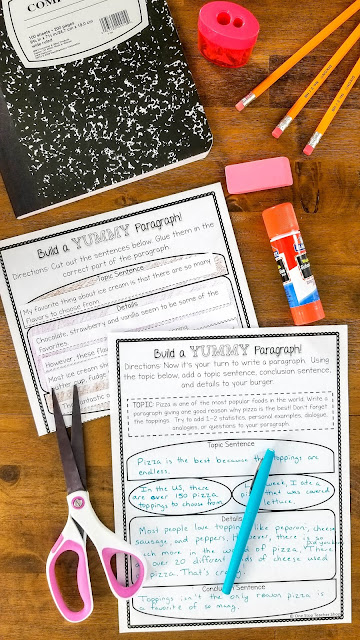 COMP
100 sheets • 200 pages
9¾ in x 7½ in/24.7 cm x 19.0 cm
wide ruled
Build a YUMMY Paragraph!
Directions: Cut out the sentences below. Glue them in the
correct part of the paragraph.
Topic Sentence
My favorite thing about ice cream is that there are so many
flavors to choose from.
Details
Chocolate, strawberry and vanilla seem to be some of the
favorites.
However, these
Most ice cream
butter cup, fudge
Build a YUMMY Paragraph!
Directions: Now it's your turn to write a paragraph. Using
the topic below, add a topic sentence, conclusion sentence,
and details to your burger.
TOPIC: Pizza is one of the most popular foods in the world. Write a
paragraph giving one good reason why pizza is the best! Don't forget
the toppings. Try to add 1-2 statistics, personal examples, dialogue,
analogies, or questions to your paragraph.
Topic Sentence
Pizza is the best because the toppings are
endless.
In the US, there
are over 150 pizza
toppings to choose from
week, I ate a
pizza that was covered
lettuce.
Details
Most people love toppings like peperoni, cheese
sausage, and peppers. However, there is so
much more in the world of pizza. There
over 20 different kinds of cheese used
pizza. That's
Conclusion Sentence
Toppings isn't the only reason pizza is
a favorite of so many.